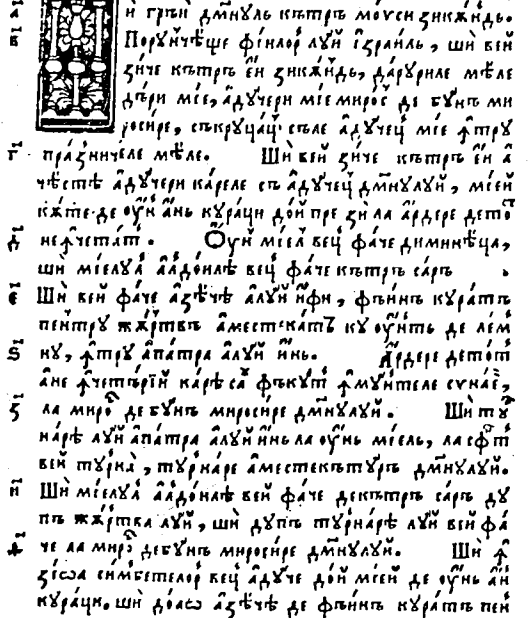 а҃ и гръи дм҃нꙋль кѣтрѣ мѡѵси зикѫндь.
в҃ Порꙋнчѣще фїилор луй і҆зраиль, ши вей
зиче кѣтрѣ е҆й зикѫндь, дарꙋриле мѣле
дъри мїе, а҆дꙋчери мїе мирос де бꙋнъ ми
росире, съкрꙋцац съле а҆дꙋчец мїе ꙟтру
г҃ празничеле мѣле. Ши вей зиче кѣтрѣ е҆й а
чѣстѣ а҆дꙋчери кареле съ а҆дꙋчец дм҃нꙋлꙋй, мїей
кѫте де оу҆н ань кꙋраци дой пре зи ла а҆рдере де тот
д҃ неꙟчетат. Оу҆н мїел вец фаче диминѣца,
ши мїелꙋл а҆лдоиле вец фаче кѣтрѣ саръ
є҃ Ши вей фаче а҆зѣчѣ а҆луй и҆фи, фъинъ кꙋратъ
пентрꙋ жѫртвъ а҆местекатъ кꙋ оу҆нть де лем
ѕ҃ нꙋ, ꙟтрꙋ а҆патра а҆луй и҆нь. А҆рдере де тот
а҆не ꙟчетѣрїй каре са фъкꙋт ꙟ мꙋнтеле синаѐ,
з҃ ла мирос де бꙋнъ миросире дм҃нꙋлꙋй. Ши тꙋр
наре луй а҆патра а҆луй и҆нь ла оу҆нь мїель, ла сфт
вей тꙋрна, тꙋрнаре а҆местекътꙋръ дм҃нꙋлꙋй.
и҃ Ши мїелꙋл а҆лдоилѣ вей фаче декѣтрѣ саръ дꙋ
пъ жѫртва луй, ши дꙋпъ тꙋрнарѣ луй вей фа
ѳ҃ че ла мирос де бꙋнъ миросире дм҃нꙋлꙋй. Ши ꙟ
зѣоа симбетелор вец а҆дꙋче дой мїей де оу҆нь ань
кꙋраци. ши доаѡ а҆зѣчѣ де фъинъ кꙋратъ пен